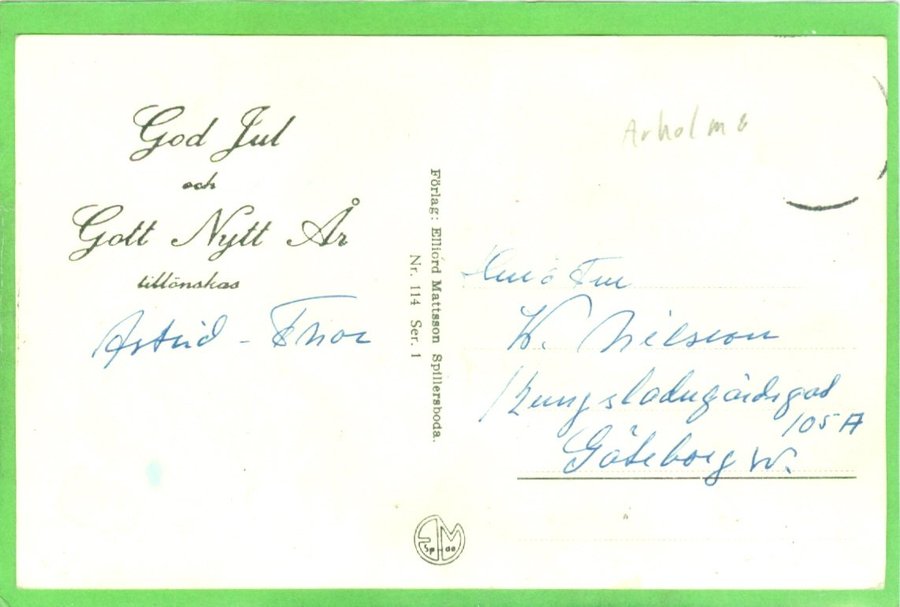 God Jul
och
Gott Nytt År
tillönskas
Astrid - Thor
Förlag: Elliord Mattsson Spillersboda.
Nr. 114 Ser. 1
Arholma
Herr o Fru
W. Nilsson
Kungsladugårdsgat
105 A
Göteborg W.